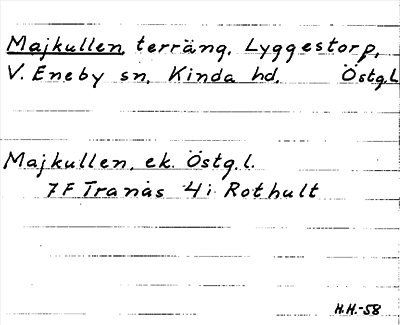 Majkullen, terräng, Lyggestorp,
V. Eneby sn, Kinda hd, Östg.l.
Majkullen, ek. Östg.l.
7F Tranås 4i Rothult
H.H.-58